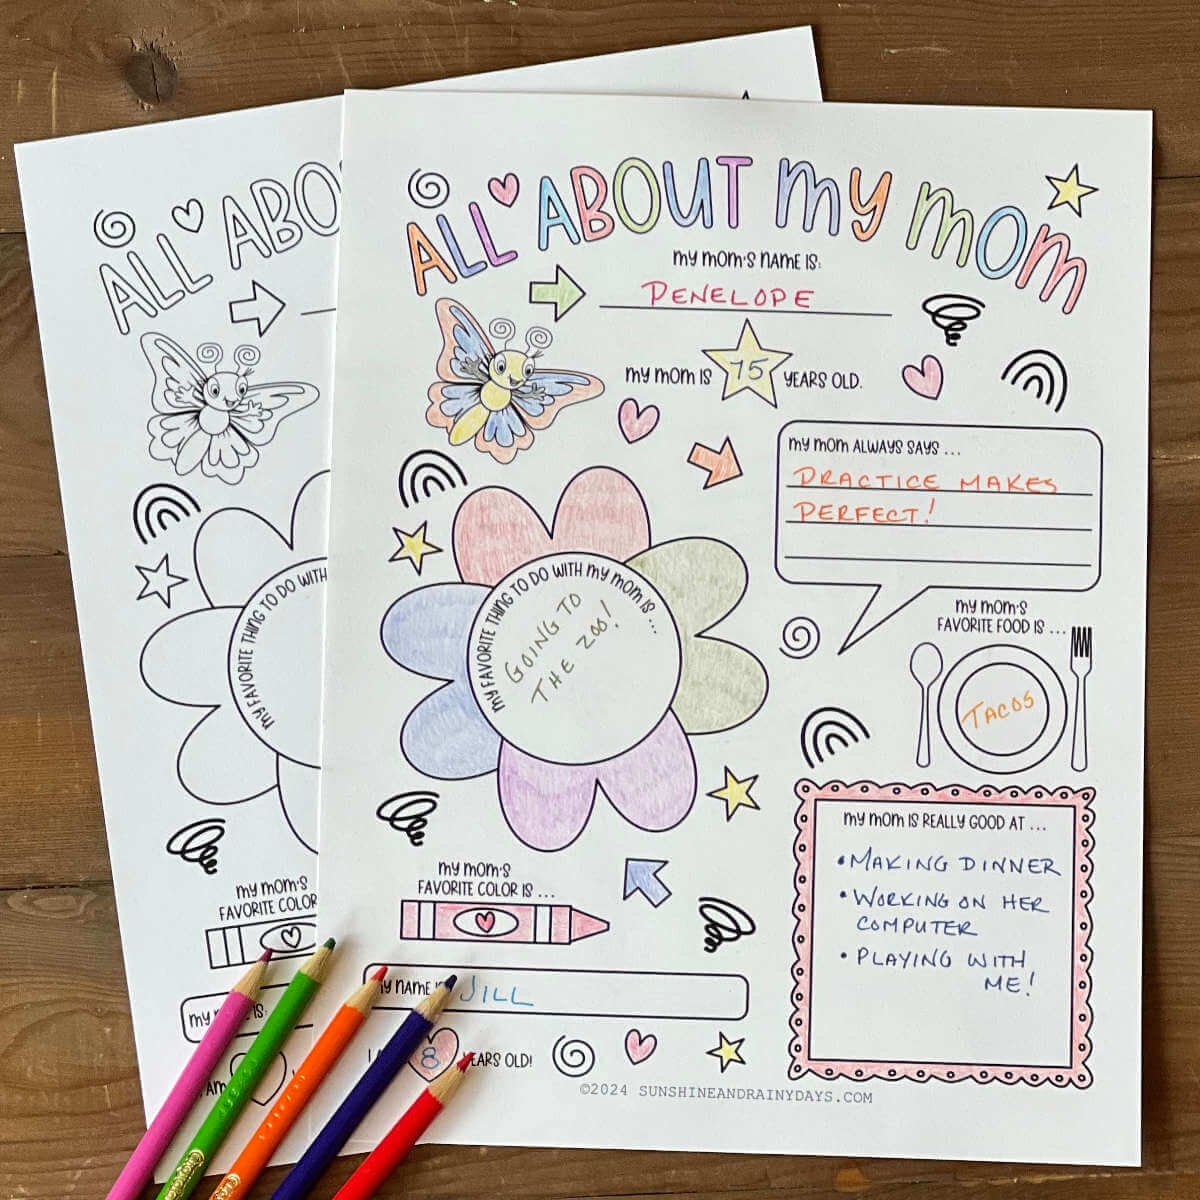 ALL ABOUT MY MOM
MY MOM'S NAME IS:
PENELOPE
MY MOM IS 75 YEARS OLD.
MY MOM ALWAYS SAYS ...
PRACTICE MAKES
PERFECT!
MY FAVORITE THING TO DO WITH MY MOM IS ...
GOING TO
THE ZOO!
MY MOM'S
FAVORITE FOOD IS ...
TACOS
MY MOM IS REALLY GOOD AT ...
• MAKING DINNER
• WORKING ON HER
COMPUTER
• PLAYING WITH
ME!
MY MOM'S
FAVORITE COLOR IS ...
MY NAME IS: JILL
8 YEARS OLD!
©2024 SUNSHINEANDRAINYDAYS.COM
ALL ABO
MY FAVORITE THING TO DO WITH
MY MOM'S
FAVORITE COLOR
MY IS:
AM